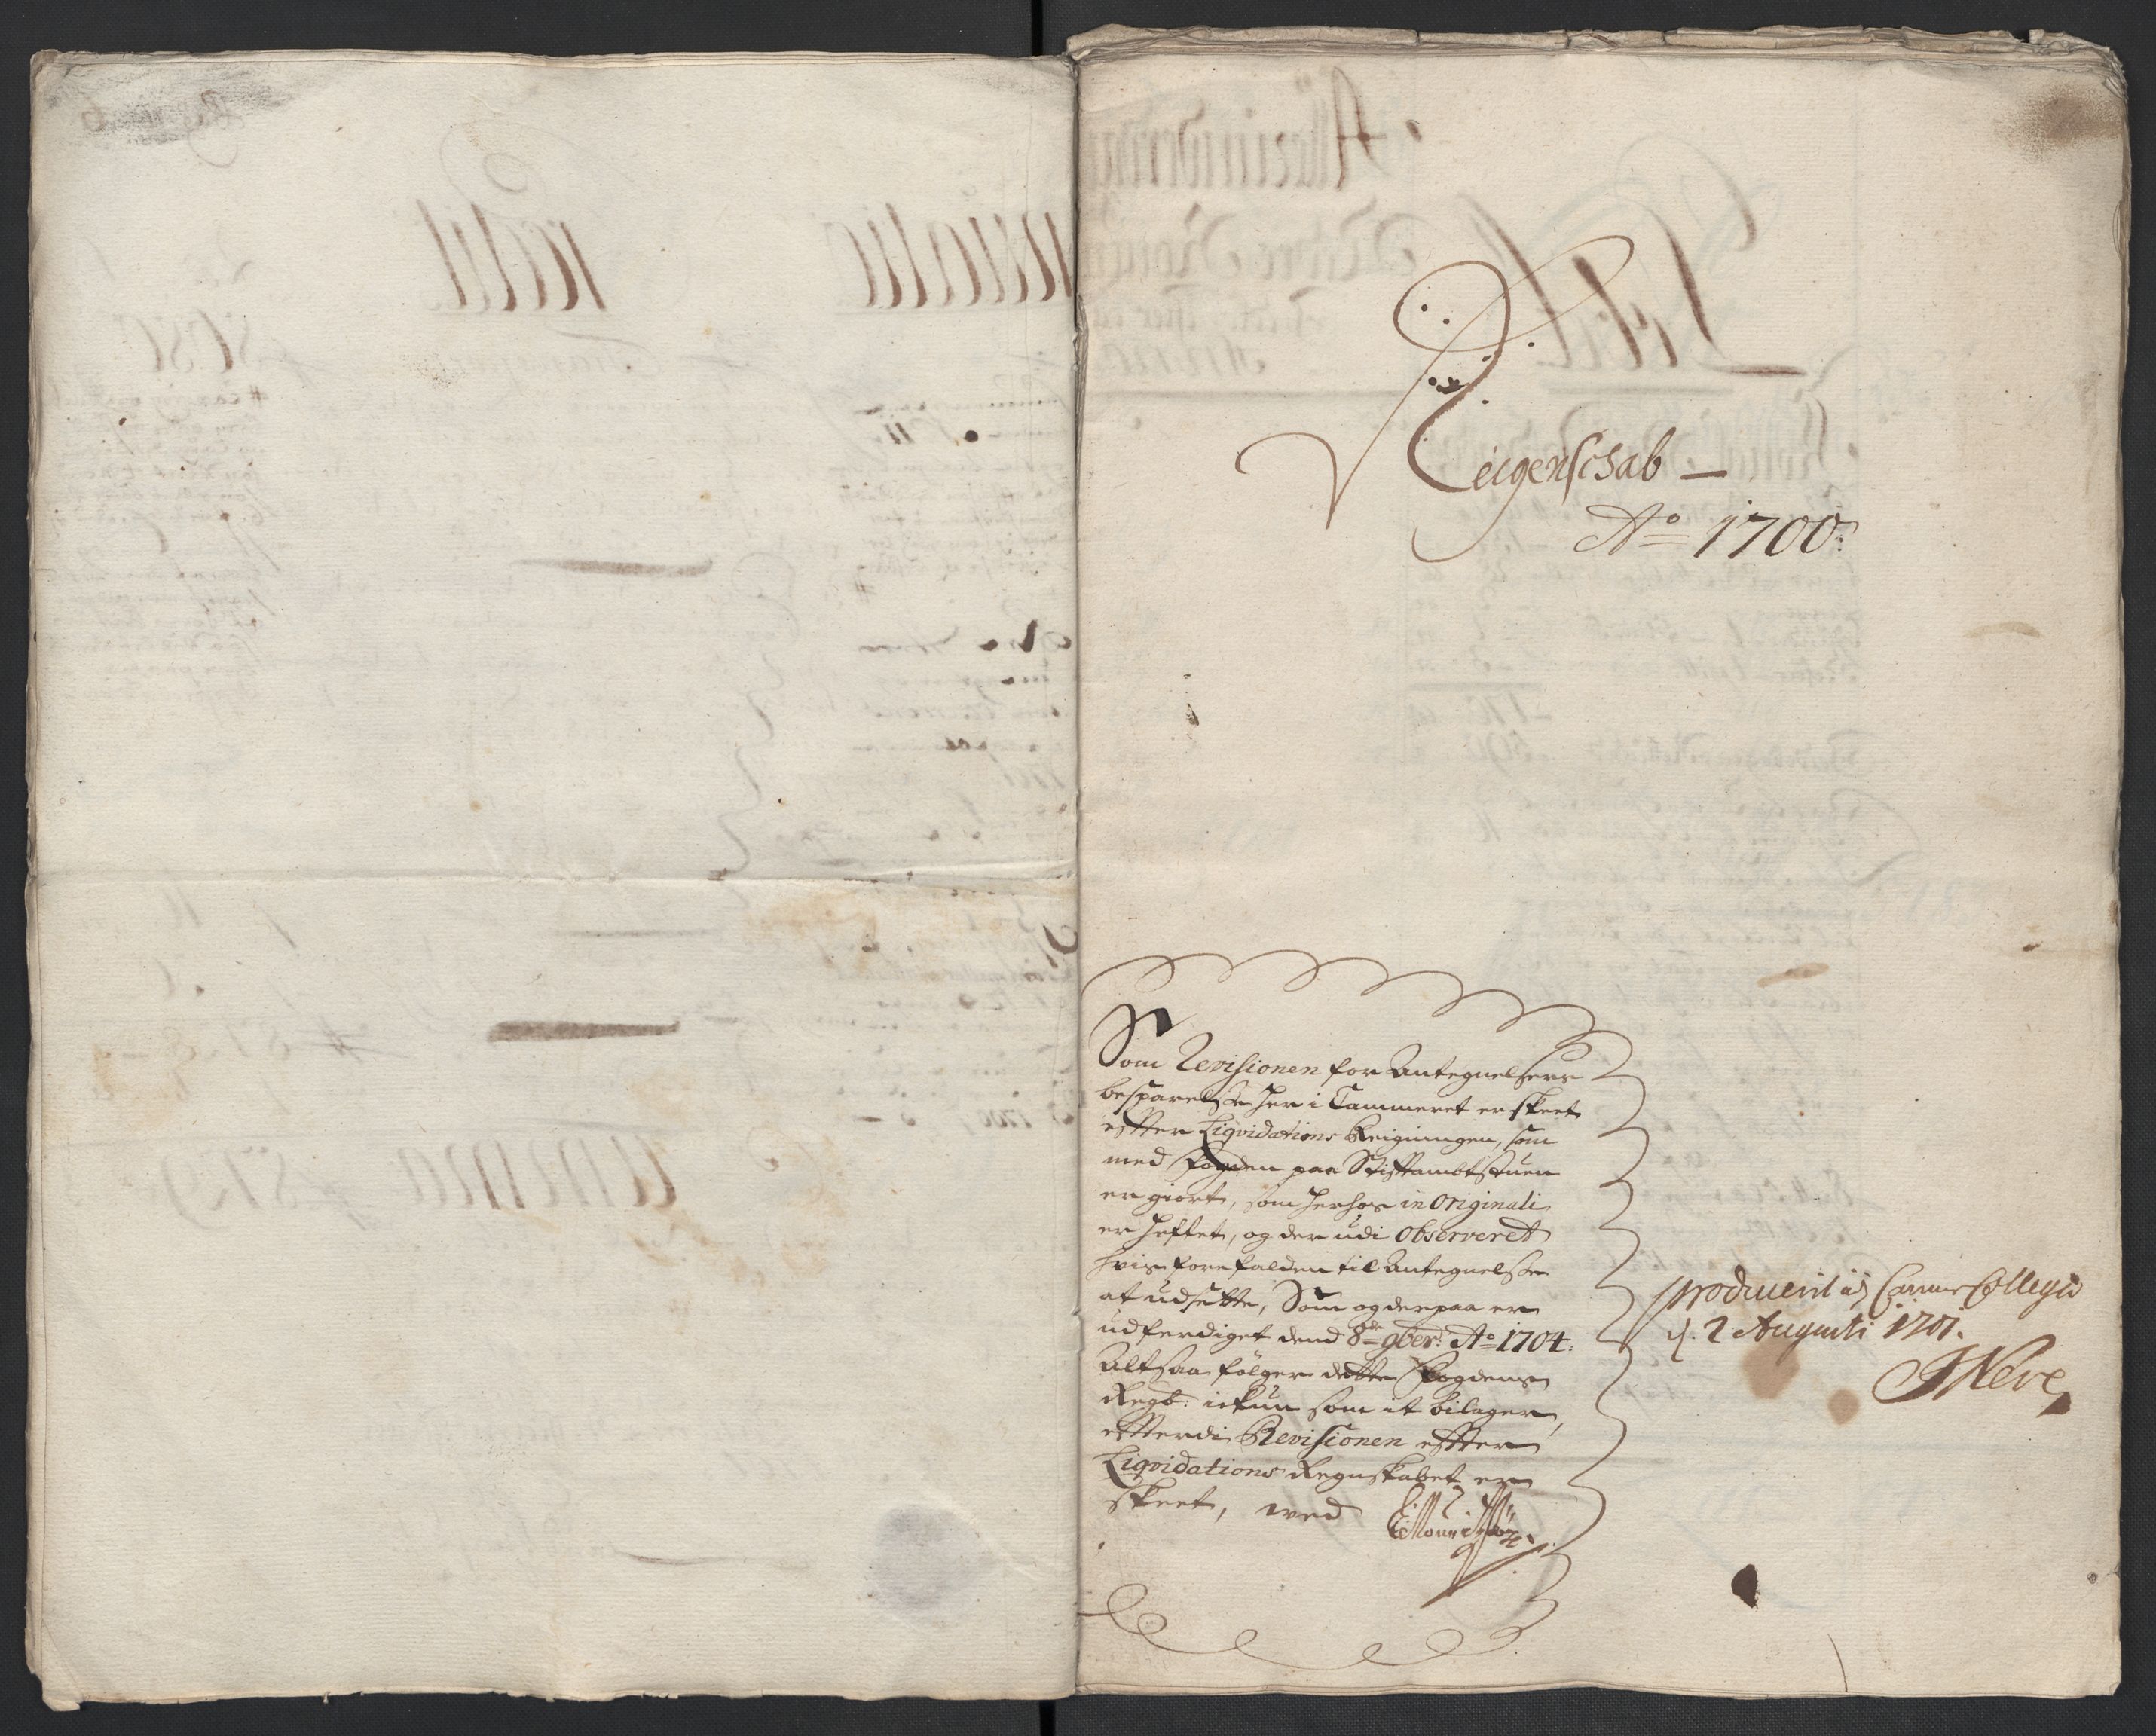 Reigenschab —
Ao 1700
Som Revisionen for Antegnelsers
besparelse her i Cammeret er skeet
efter Liqvidations Reigningen, som
med fogden paa Stiftamtstuen
er giort, som herhos in originali
er heftet, og der udi observeret
hvis forefalden til Antegnelse
at udsette, Som og derpaa er
udferdiget dend 8de 9ber: Ao 1704.
Altsaa følger dette fogdens
Regb: ickun som it bilager,
efterdi Revisionen efter
Liqvidations Regnskabet er
skeet, ved
producerit udj Camer Collegio
d. 2 Augusti 1701.